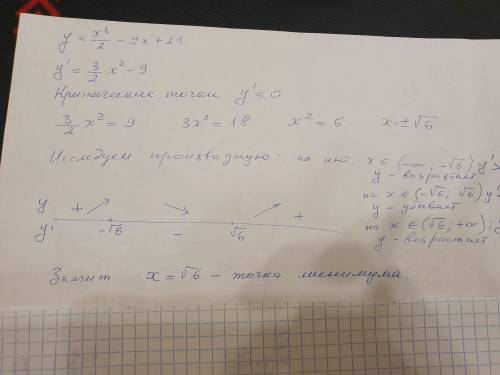 y = x³/2 - 9x + 21
y' = 3/2 x² - 9
Критические точки y' = 0
3/2 x² = 9 3x² = 18 x² = 6 x = ±√6
Исследуем производную: на инт. x ∈ (-∞; -√6) y' >
y - возрастает
на x ∈ (-√6; √6) y'
y - убывает
на x ∈ (√6; +∞);
y - возрастает
y + ↗ ↘ ↗ +
y' -√6 - √6
Значит x = √6 - точка минимума.